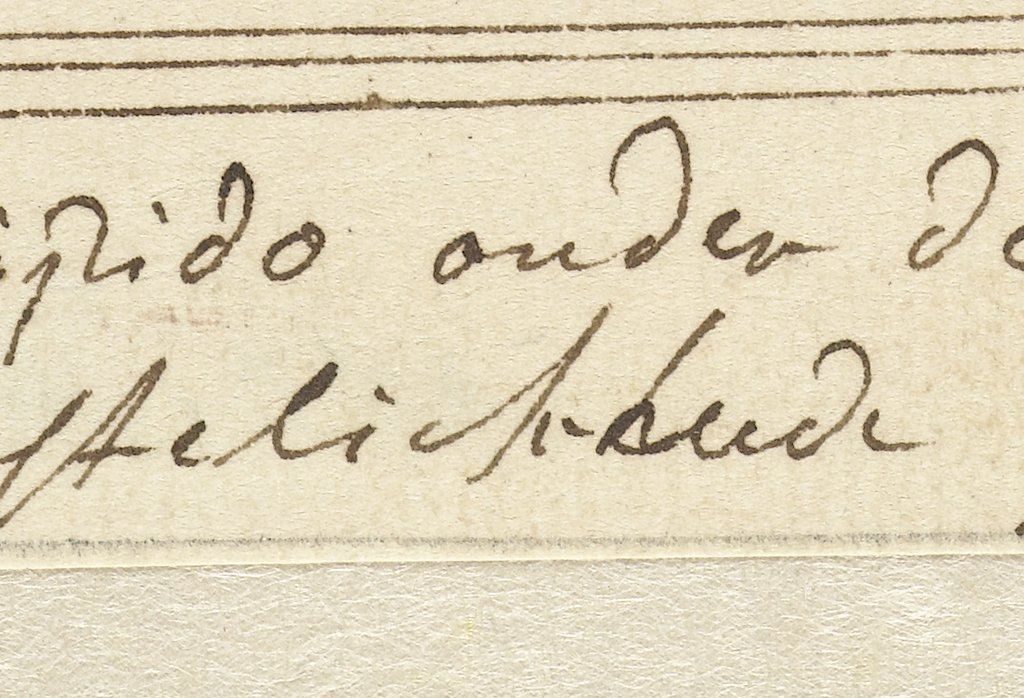 ipido onder de
stelickheude